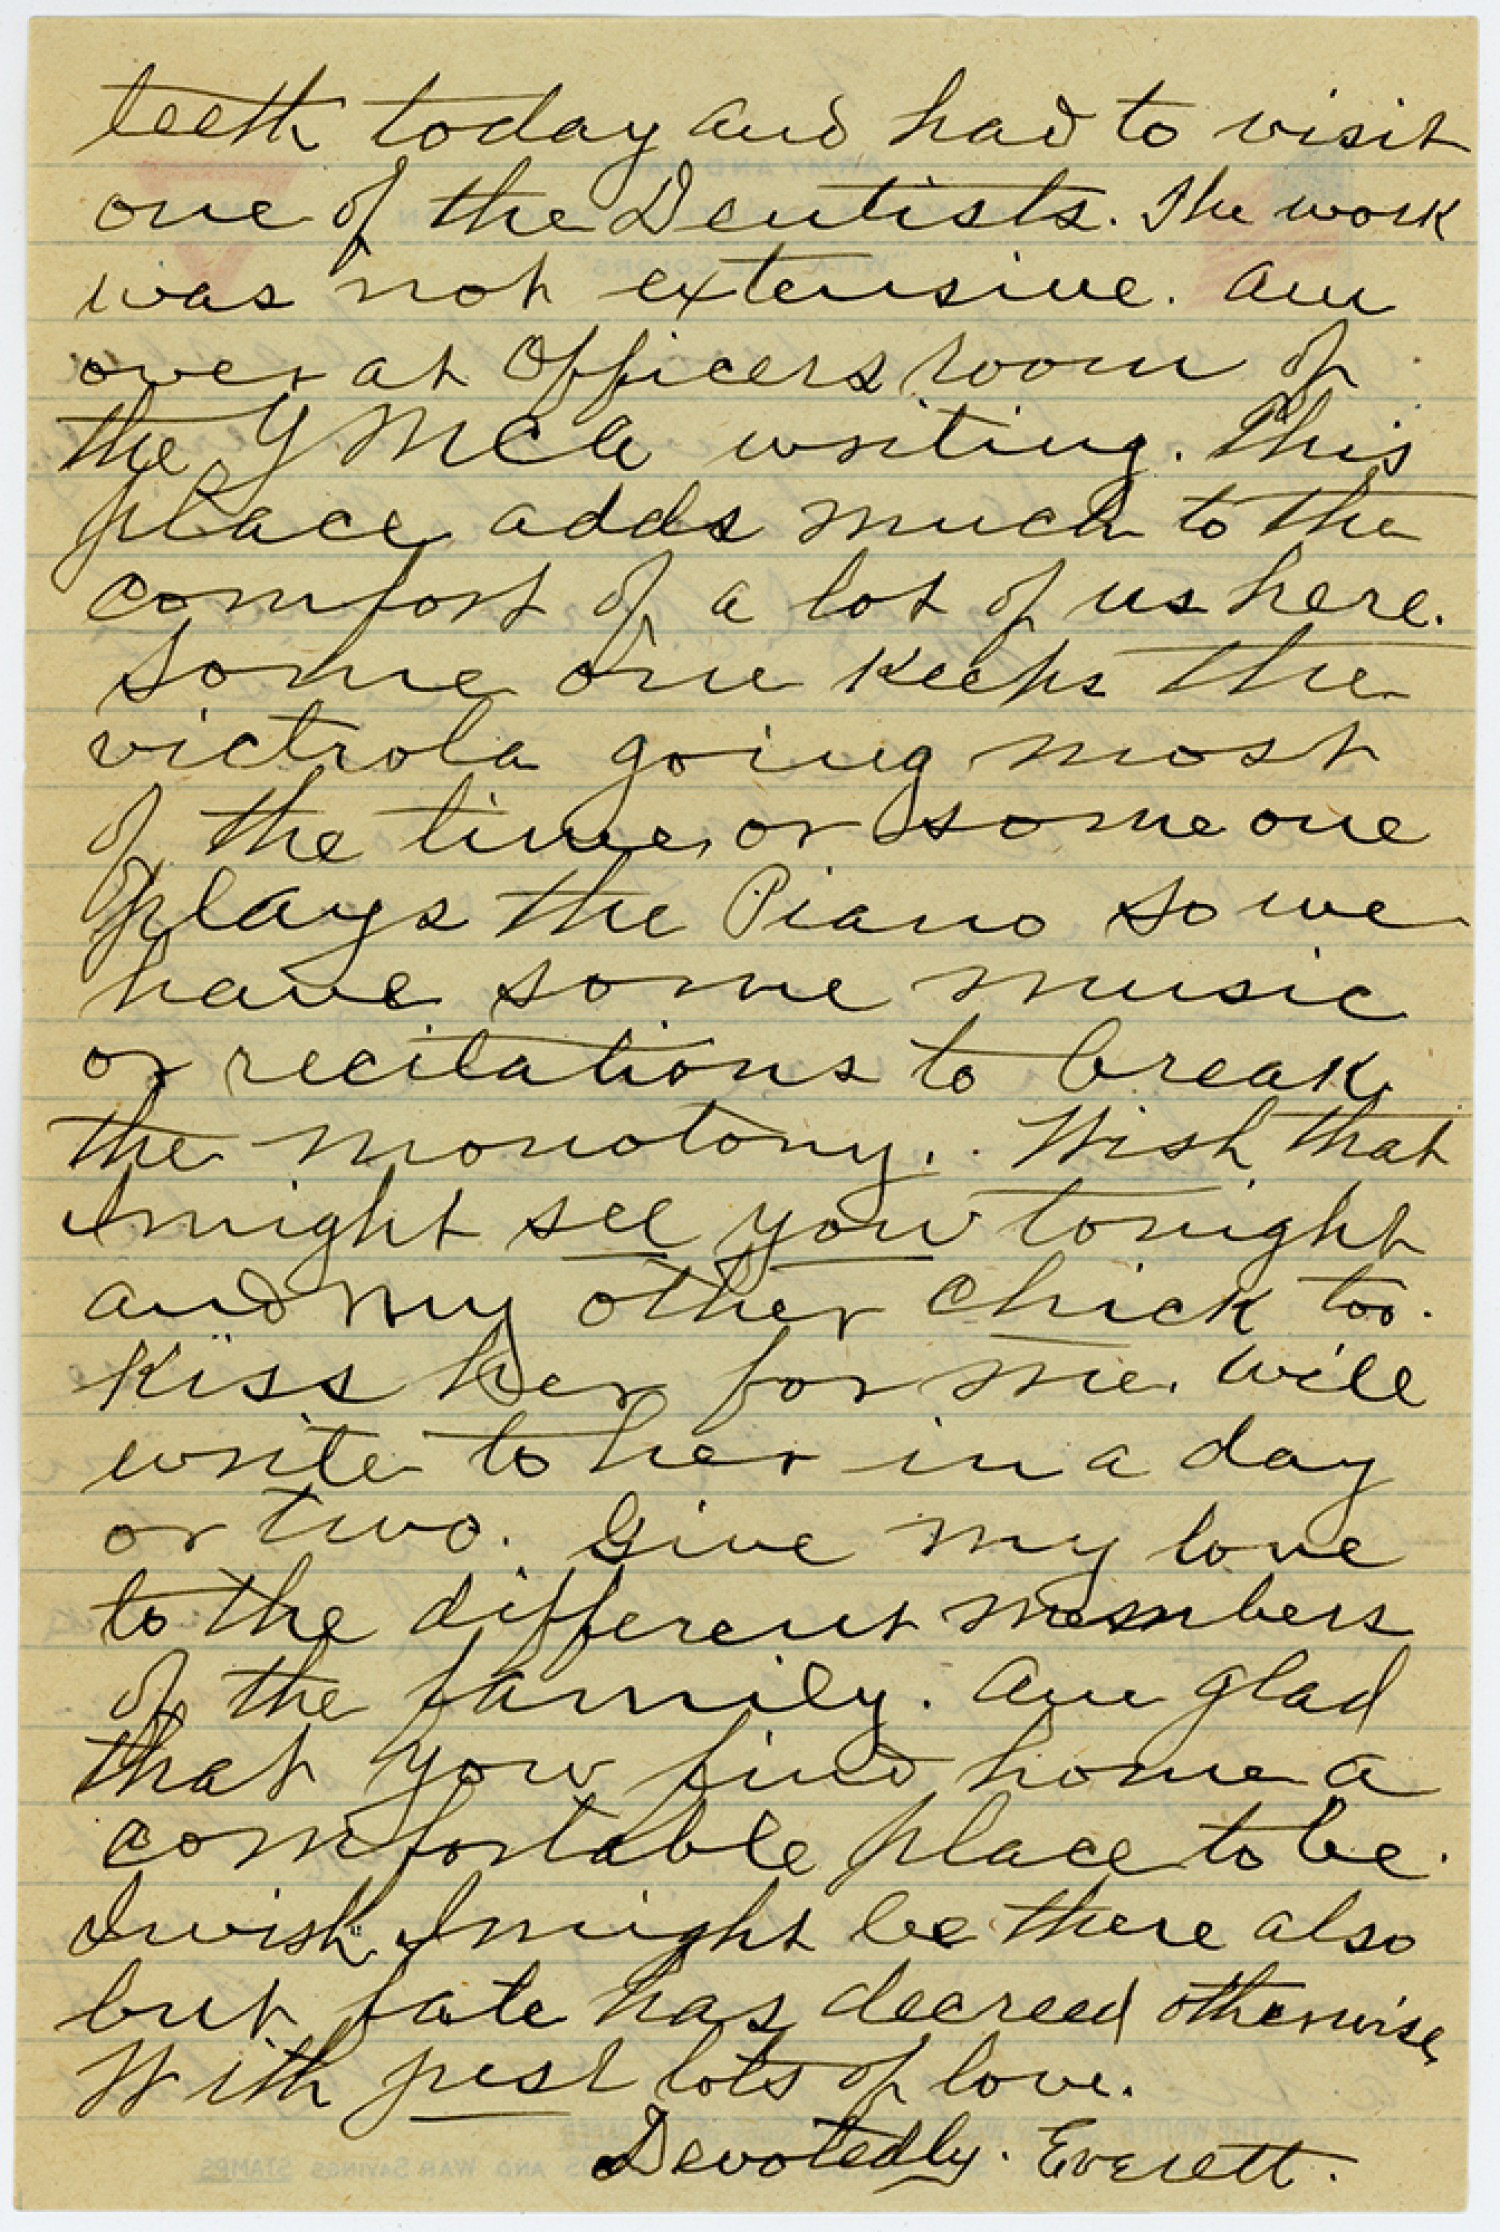 teeth today and had to visit
one of the Dentists. The work
was not extensive. Am
over at Officers room of
the YMCA writing. This
place adds much to the
comfort of a lot of us here.
Some one keeps the
victrola going most
of the time, or some one
plays the Piano so we
have some music
or recitations to break
the monotony. Wish that
I might see you tonight
and my other chick too.
Kiss her for me. Will
write to her in a day
or two. Give my love
to the different members
of the family. Am glad
that you find home a
comfortable place to be.
I wish I might be there also
but fate has decreed otherwise.
With jest lots of love.
Devotedly. Everett.